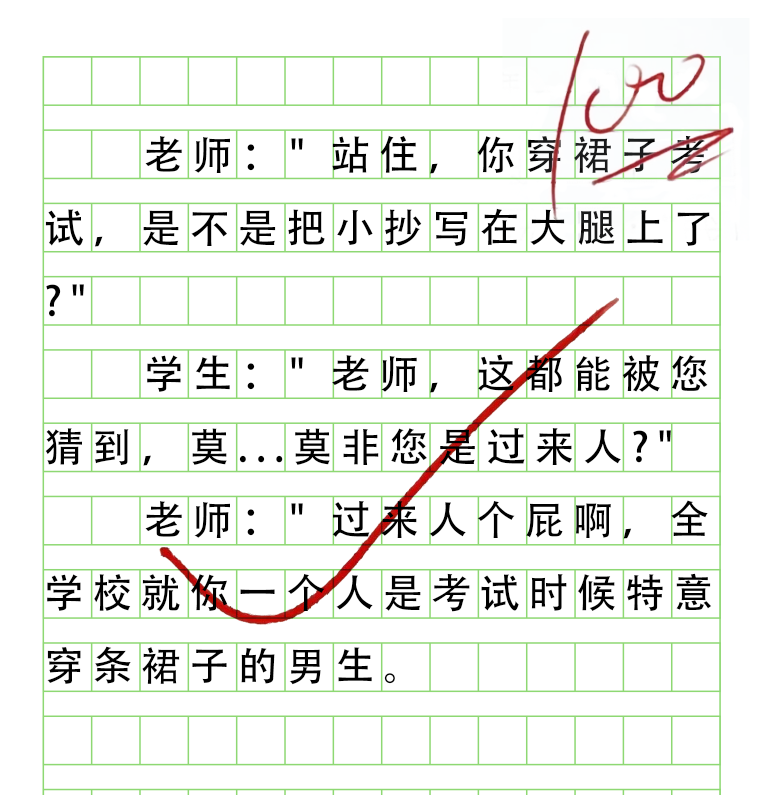 100
老师："站住，你穿裙子考
试，是不是把小抄写在大腿上了
?"
学生："老师，这都能被您
猜到，莫...莫非您是过来人?"
老师："过来人个屁啊，全
学校就你一个人是考试时候特意
穿条裙子的男生。